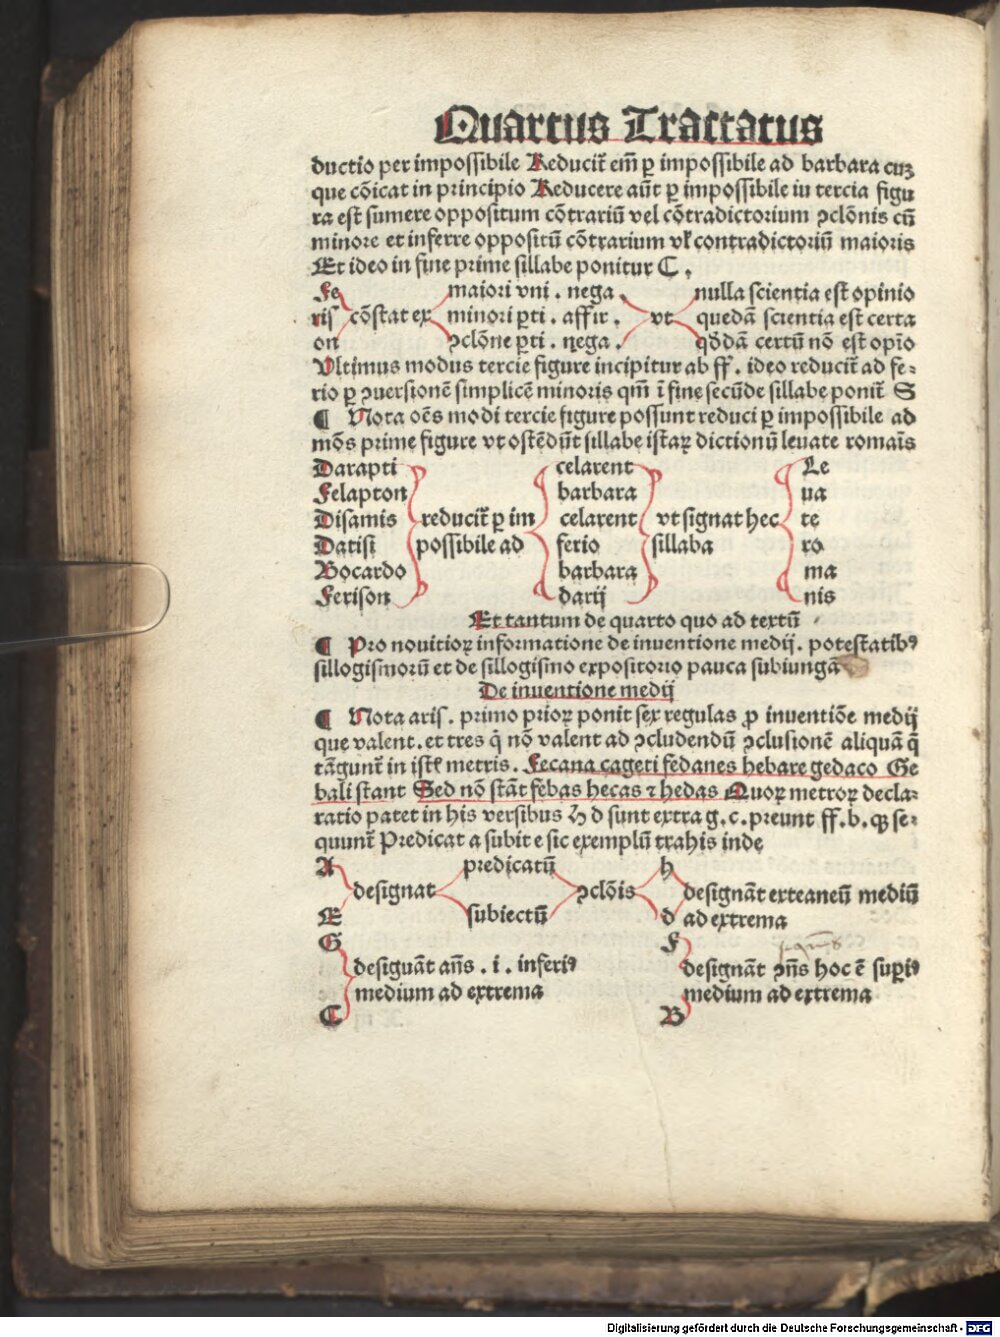 Quartus Tractatus
ductio per impossibile Reducit᷑ em̄ ꝑ impossibile ad barbara cuꝫ
que cōicat in principio Reducere aūt ꝑ impossibile iu tercia figu
ra est sumere oppositum cōtrariū vel cōtradictorium ꝯclōnis cū
minore et inferre oppositū cōtrarium vľ contradictoriū maioris
Et ideo in fine prime sillabe ponitur C .
Fe maiori vni . nega . nulla scientia est opinio
ris cōstat ex minori ꝑti . affir . vt quedā scientia est certa
on ꝯclōne ꝑti . nega . qōdā certū nō est opīo
Vltimus modus tercie figure incipitur ab ff . ideo reducit᷑ ad fe⸗
rio ꝑ ꝯuersionē simplicē minoris qm̄ ī fine secūde sillabe ponit᷑ S
¶ Nota oēs modi tercie figure possunt reduci ꝑ impossibile ad
mōs prime figure vt ostēdūt sillabe istaꝝ dictionū leuate romaīs
Darapti celarent Le
Felapton barbara ua
Disamis reducit᷑ ꝑ im celarent vt signat hec te
Datisi possibile ad ferio sillaba ro
Bocardo barbara ma
Ferison darij nis
Et tantum de quarto quo ad textū
¶ Pro nouitioꝝ informatione de inuentione medij . potestatibꝰ
sillogismorū et de sillogismo expositorio pauca subiungā
De inuentione medij
¶ Nota aris . primo prioꝝ ponit sex regulas ꝓ inuentiōe medij
que valent . et tres q̄ nō valent ad ꝯcludendū ꝯclusionē aliquā q̄
tāgunt᷑ in istľ metris . Fecana cageti fedanes hebare gedaco Ge
bali stant Sed nō stāt febas hecas ⁊ hedas Quoꝝ metroꝝ decla⸗
ratio patet in his versibus H d sunt extra g . c . preunt ff . b . qꝫ se⸗
quunt᷑ Predicat a subit e sic exemplū trahis inde
A predicatū h
designat ꝯclōis designāt exteaneū mediū
E subiectū d ad extrema
G F
designāt añs . i . inferiꝰ designāt ꝯñs hoc ē supiꝰ
medium ad extrema medium ad extrema
C B
Digitalisierung gefördert durch die Deutsche Forschungsgemeinschaft - DFG